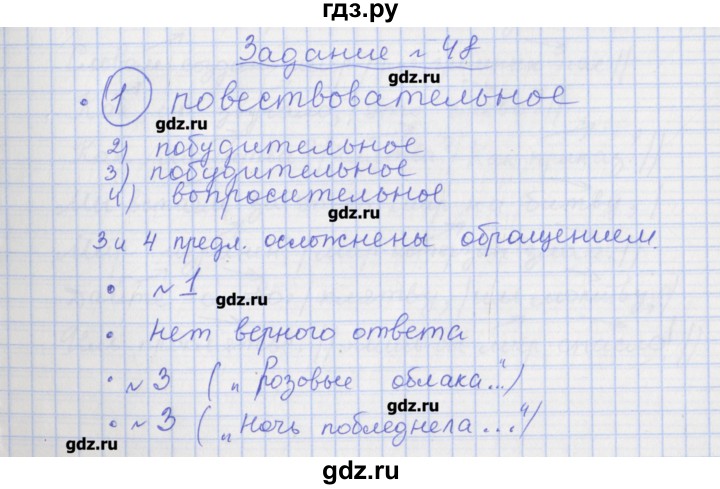 гдз.ру
Задание №48
gdz.ru
• 1 повествовательное
gdz.ru
2) побудительное
3) побудительное
4) вопросительное
gdz.ru
3 и 4 предл. осложнены обращением.
• №1
gdz.ru
• Нет верного ответа
gdz.ru
• №3 („Розовые облака...“)
gdz.ru
• №3 („Ночь побледнела...“)
gdz.ru
гдз.ру